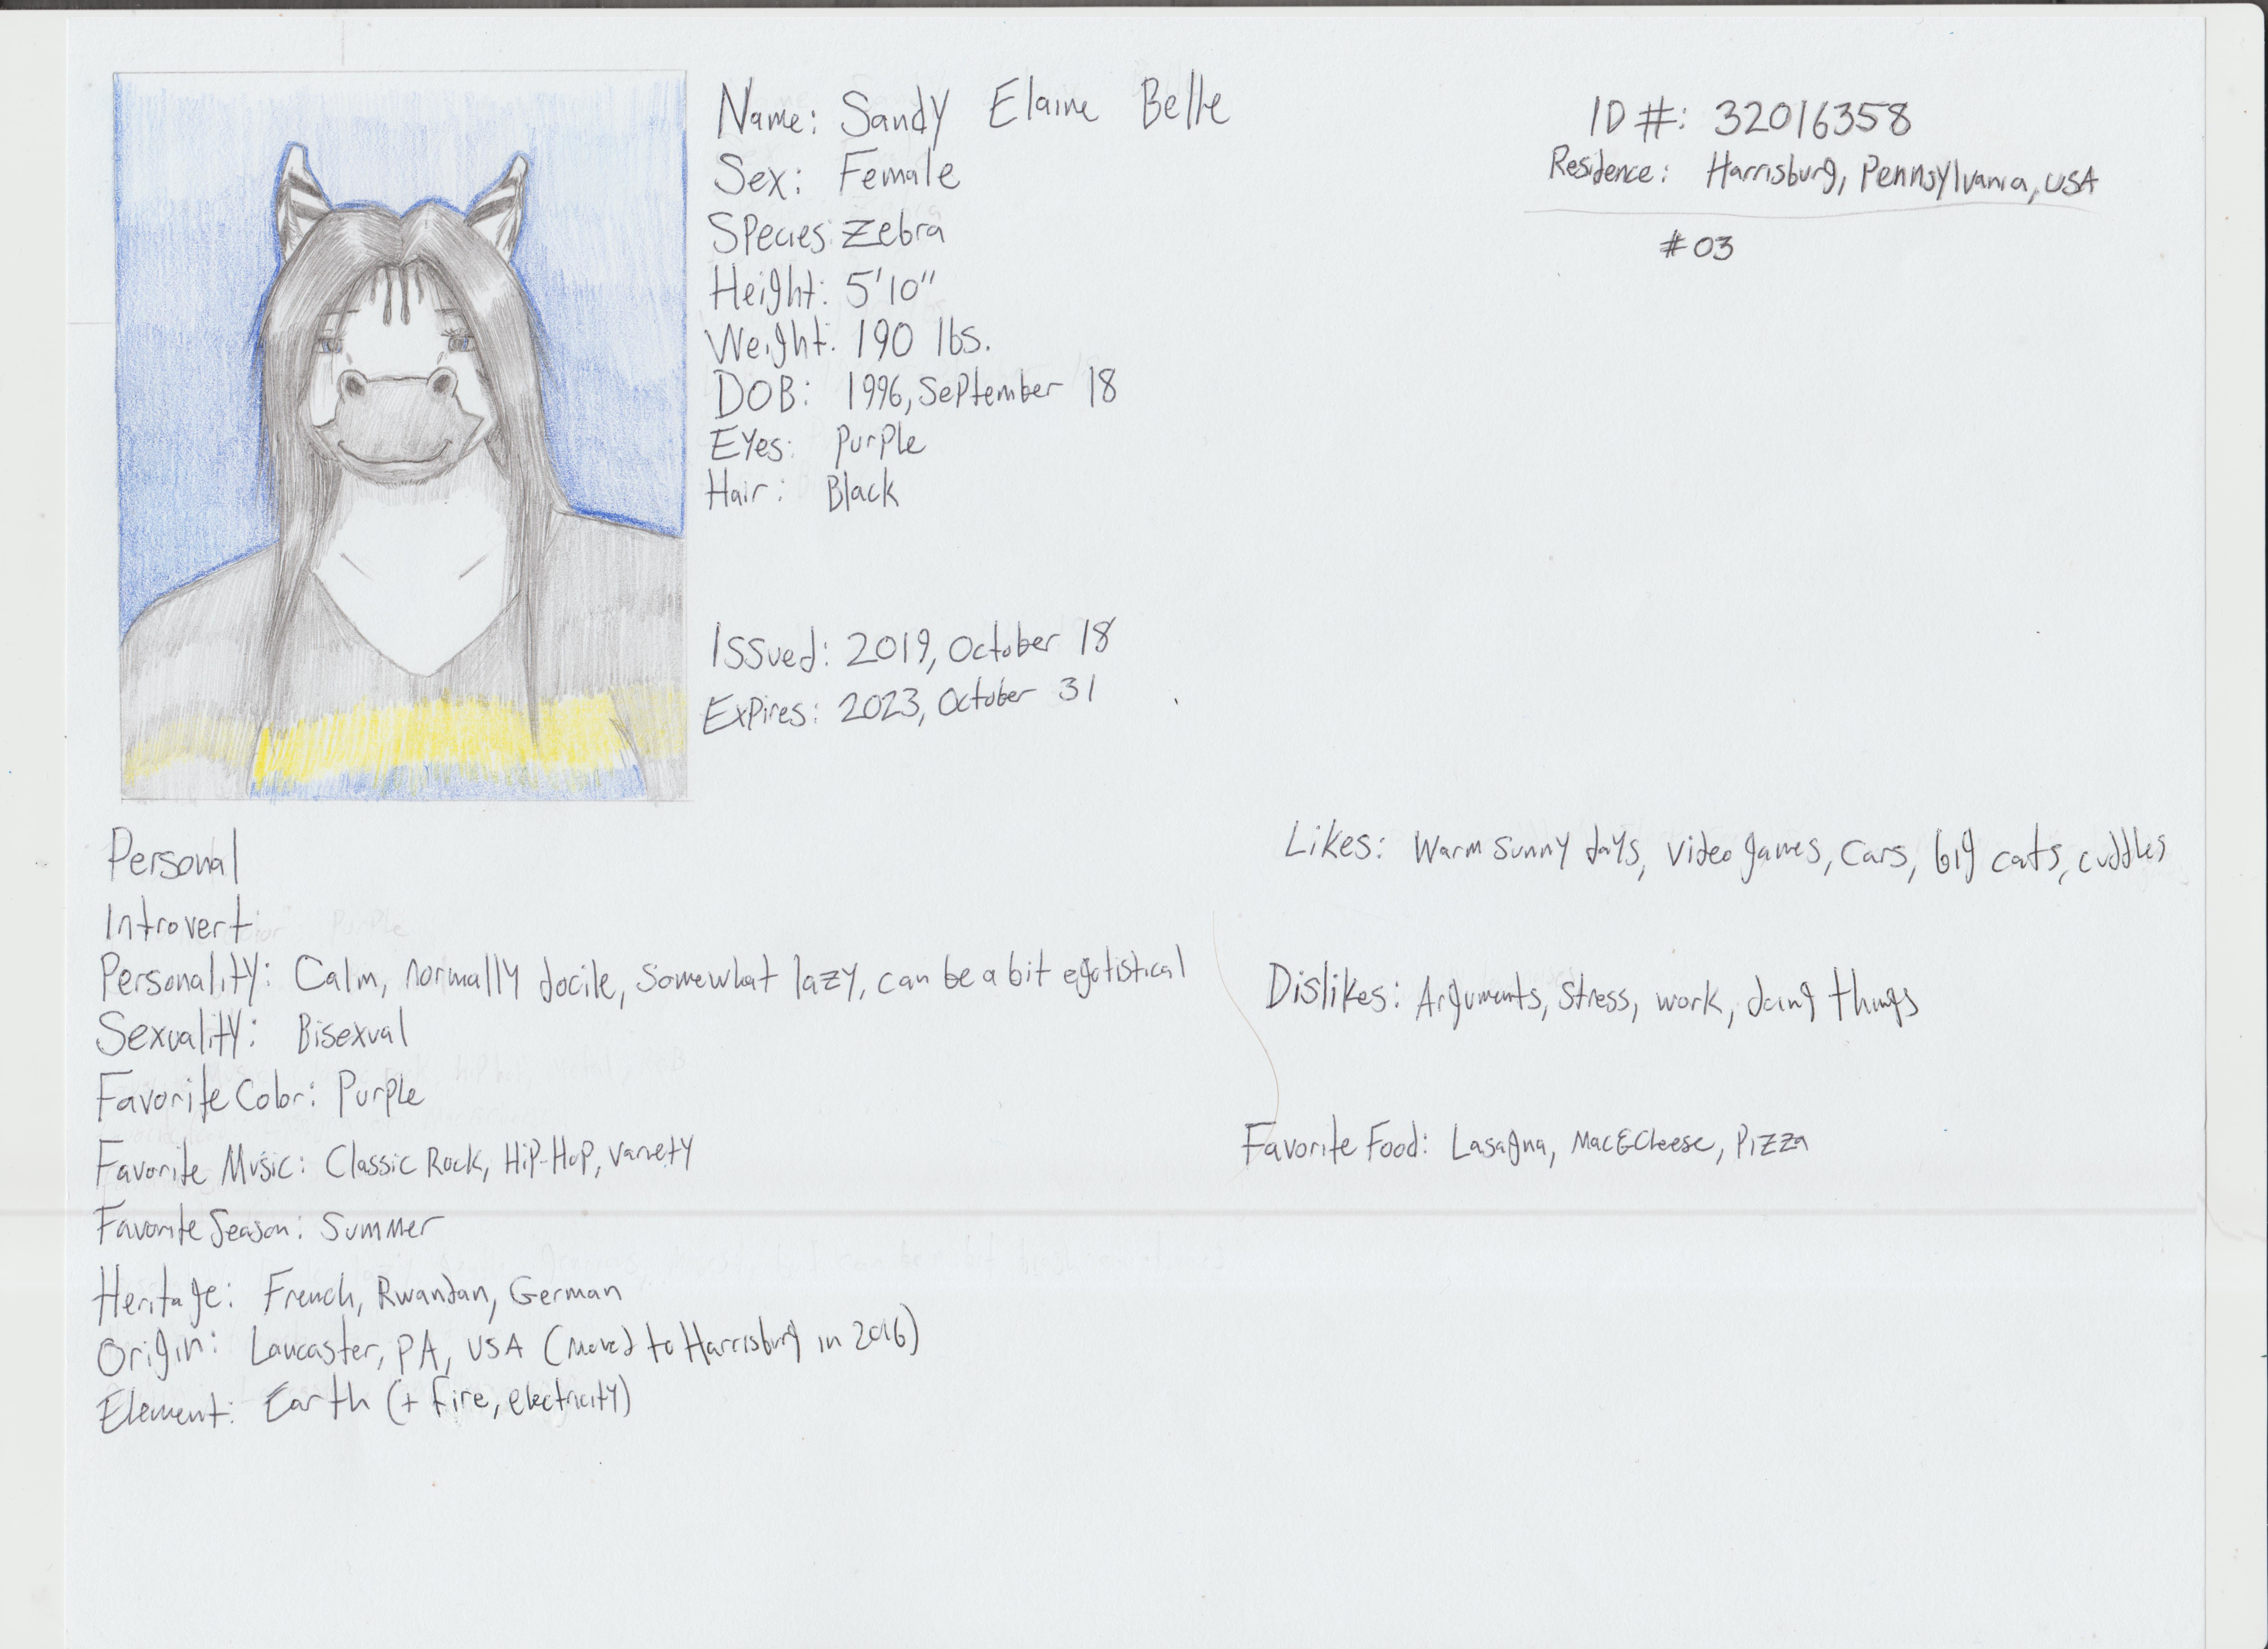 Name: Sandy Elaine Belle
Sex: Female
Species: Zebra
Height: 5'10"
Weight: 190 lbs.
DOB: 1996, September 18
Eyes: Purple
Hair: Black
Issued: 2019, October 18
Expires: 2023, October 31
ID #: 32016358
Residence: Harrisburg, Pennsylvania, USA
#03
Personal
Introvert
Personality: Calm, normally docile, somewhat lazy, can be a bit egotistical
Sexuality: Bisexual
Favorite Color: Purple
Favorite Music: Classic Rock, Hip-Hop, variety
Favorite Season: Summer
Heritage: French, Rwandan, German
Origin: Lancaster, PA, USA (moved to Harrisburg in 2016)
Element: Earth (+ fire, electricity)
Likes: Warm sunny days, video games, cars, big cats, cuddles
Dislikes: Arguments, stress, work, doing things
Favorite Food: Lasagna, Mac&Cheese, Pizza